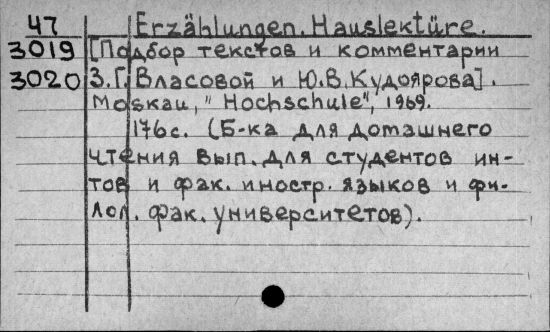 47 Erzählungen. Hauslektüre.
3019 [Подбор текстов и комментарии
3020 З.Г. Власовой и Ю.В. Кудоярова].
Moskau, "Hochschule", 1969.
176 с. (Б-ка для домашнего
чтения вып. для студентов ин-
тов и фак. иностр. языков и фи-
лол. фак. университетов).